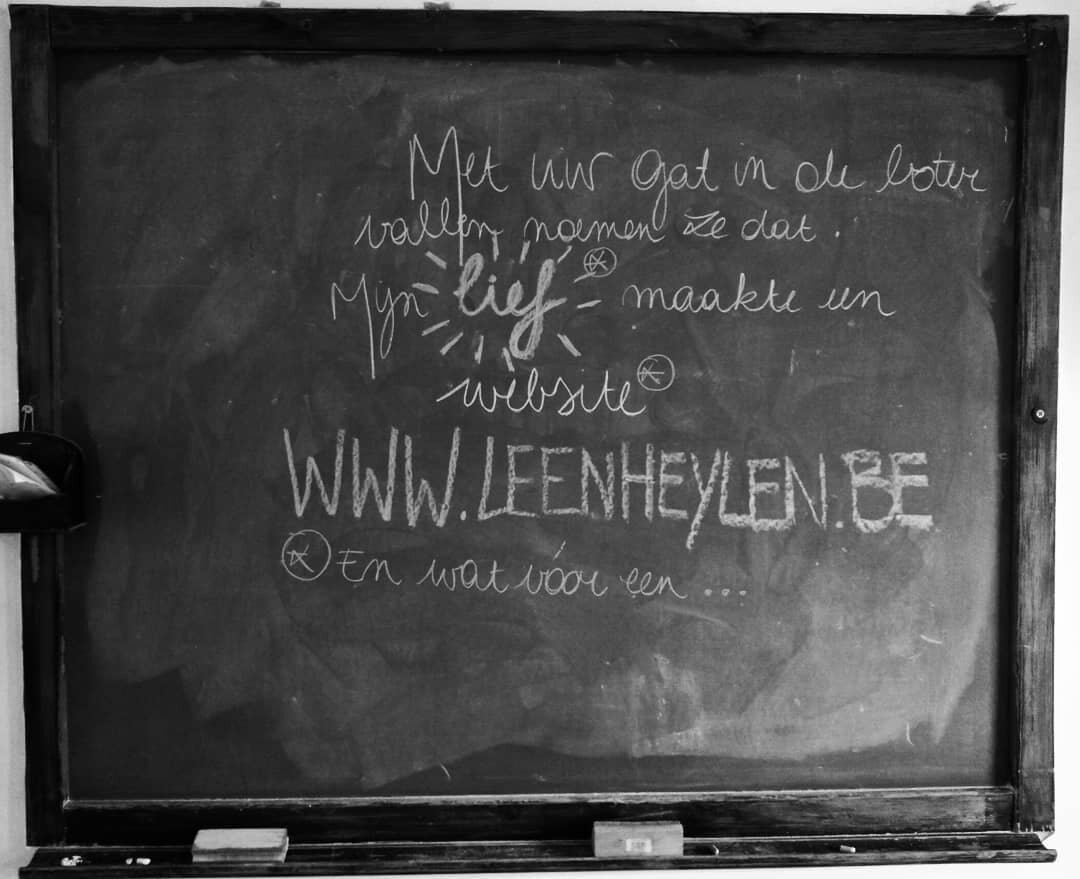 Met uw gat in de boter
vallen noemen ze dat.
Mijn lief * maakte een
website *
WWW.LEENHEYLEN.BE
* En wat vóór een ...